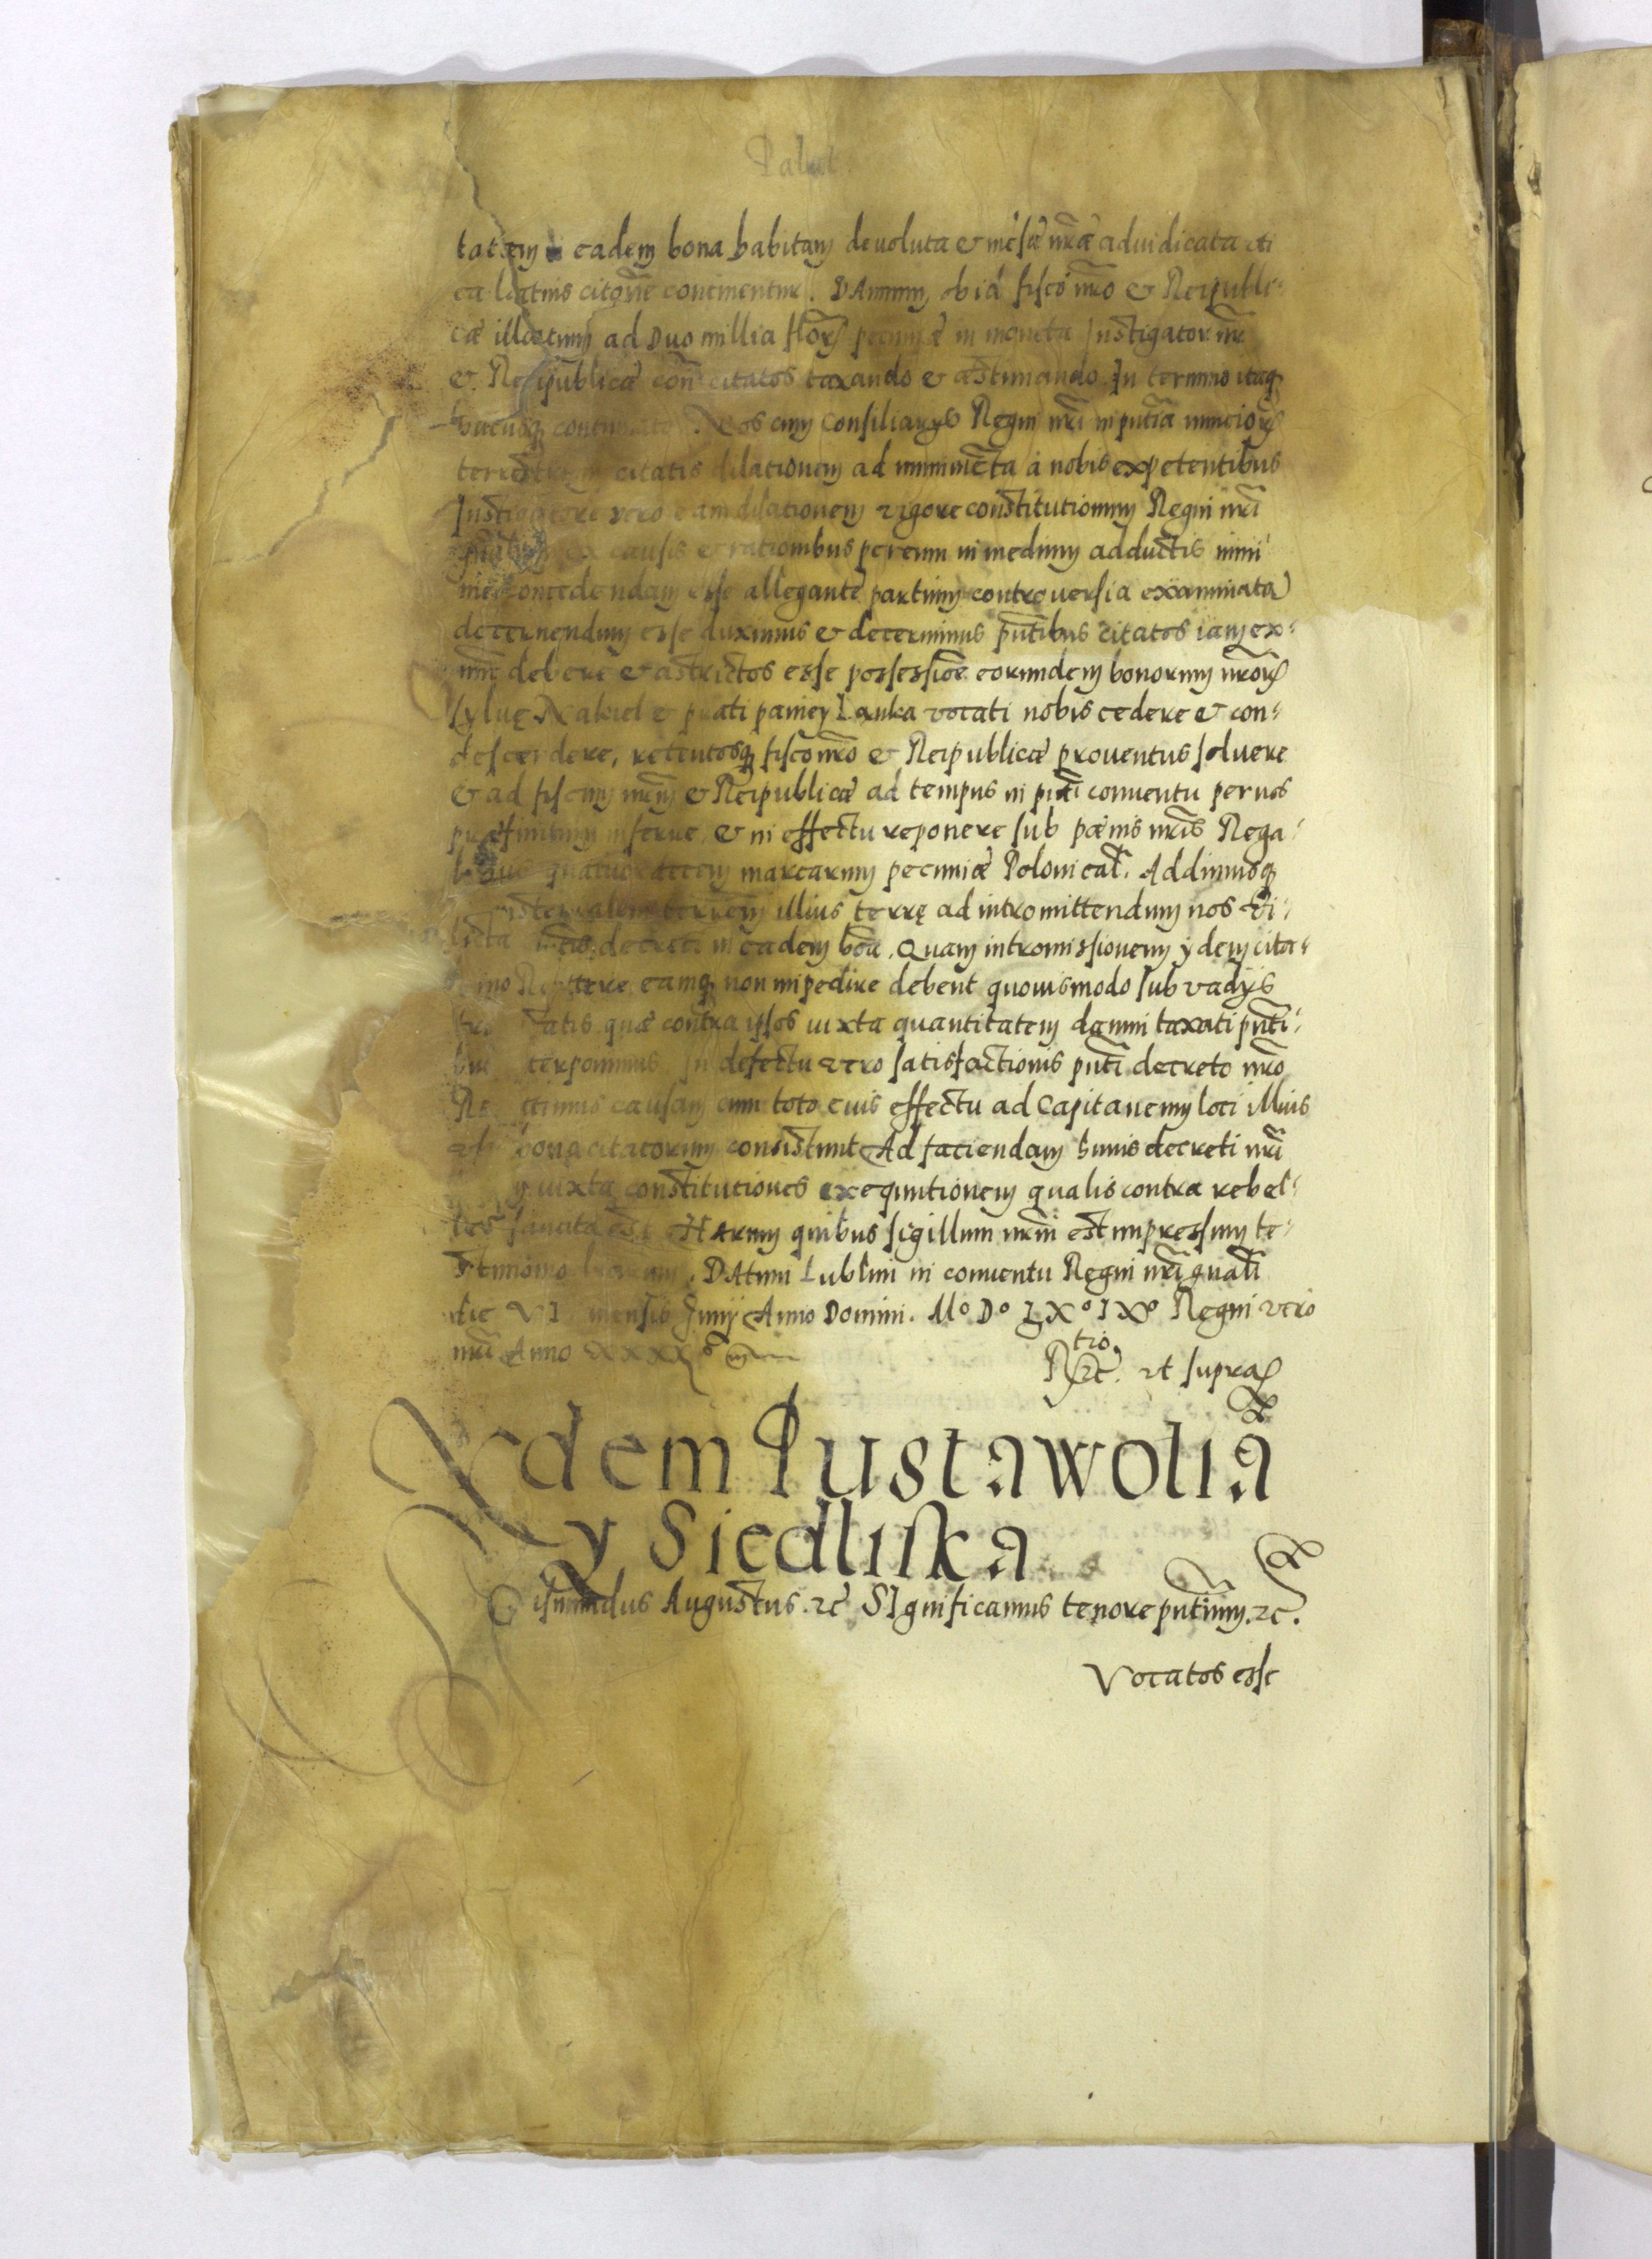 Palat
tatem in eadem bona habitam devoluta & mēsæ nr̄æ adiudicata eti
ea latius citōne continentur. DAmnum, ob id fisco nr̄o & Reipubli⸗
cæ illatum ad Duo millia flor̄ pecuniæ in moneta Instigator nr̄
& Reipublicæ con̄ citatos taxando & æstimando. In termino itaq
hucusq continuato. Nos cum Consiliarys Regni nr̄i in pn̄tia nuncior̄
terrestrium citatis dilationem ad munimēta à nobis expetentibus
Instigatore vero eam dilationem rigore constitutionum Regni nr̄i
ex causis et rationibus per eum in medium adductis mini
mè concedendam esse allegante partium controversia examinata
decernendum esse duximus & decernimus pn̄tibus citatos iam ex⸗
nūc debere & astrictos esse possessiōe eorundem bonorum nr̄or̄
sylvę Nakiel & prati paniey Lanka vocati nobis cedere & con⸗
descendere, retentosq fisco nr̄o & Reipublicæ proventus solvere
& ad fiscum nr̄um & Reipublicæ ad tempus in pn̄ti conventu per nos
præfinitum inferre, & in effectu reponere sub pœnis nr̄is Rega⸗
libus quatuordecem marcarum pecuniæ Polonicał. Addimusq
ministerialem terrēm illius terrę ad intromittendum nos Vi⸗
decreti in eadem bōa. Quam intromissionem ydem cita⸗
eamq non impedire debent quovismodo sub vadys
quæ contra ipsos iuxta quantitatem damni taxati pn̄ti⸗
bus terponimus. In defectu vero satisfactionis pn̄ti decreto nr̄o
Re ttimus causam cum toto eius effectu ad Capitaneum loci illius
ubi bona citatorum consistunt Ad faciendam huius decreti nr̄i
iuxta constitutiones exequutionem qualis contra rebel⸗
les sancita est. HArum quibus sigillum nr̄m est impressum te⸗
stimonio literarum. DAtum Lublini in conventu Regni nr̄i gn̄ali
die VI mensis Junij Anno Domini. Mo Do LXo IXo Regni vero
nr̄i Anno XXXXo
Rtio, zc̄. ut supra
Ydem Pustawolia
y Siedliska
Gismundus Augustus. zc̄ SIgnificamus tenore pn̄tium. zc̄.
Vocatos esse